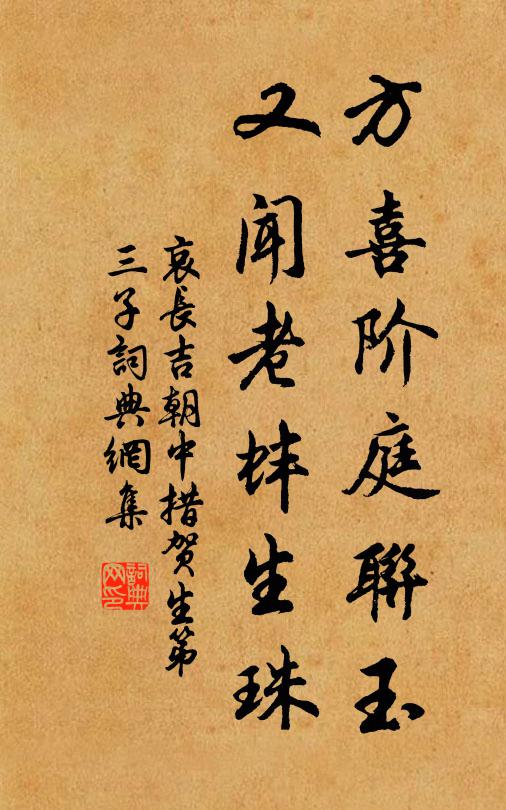 方喜阶庭聯玉
又闻老蚌生珠
哀長吉朝中措贺生第
三子詞典網集
詞典网印